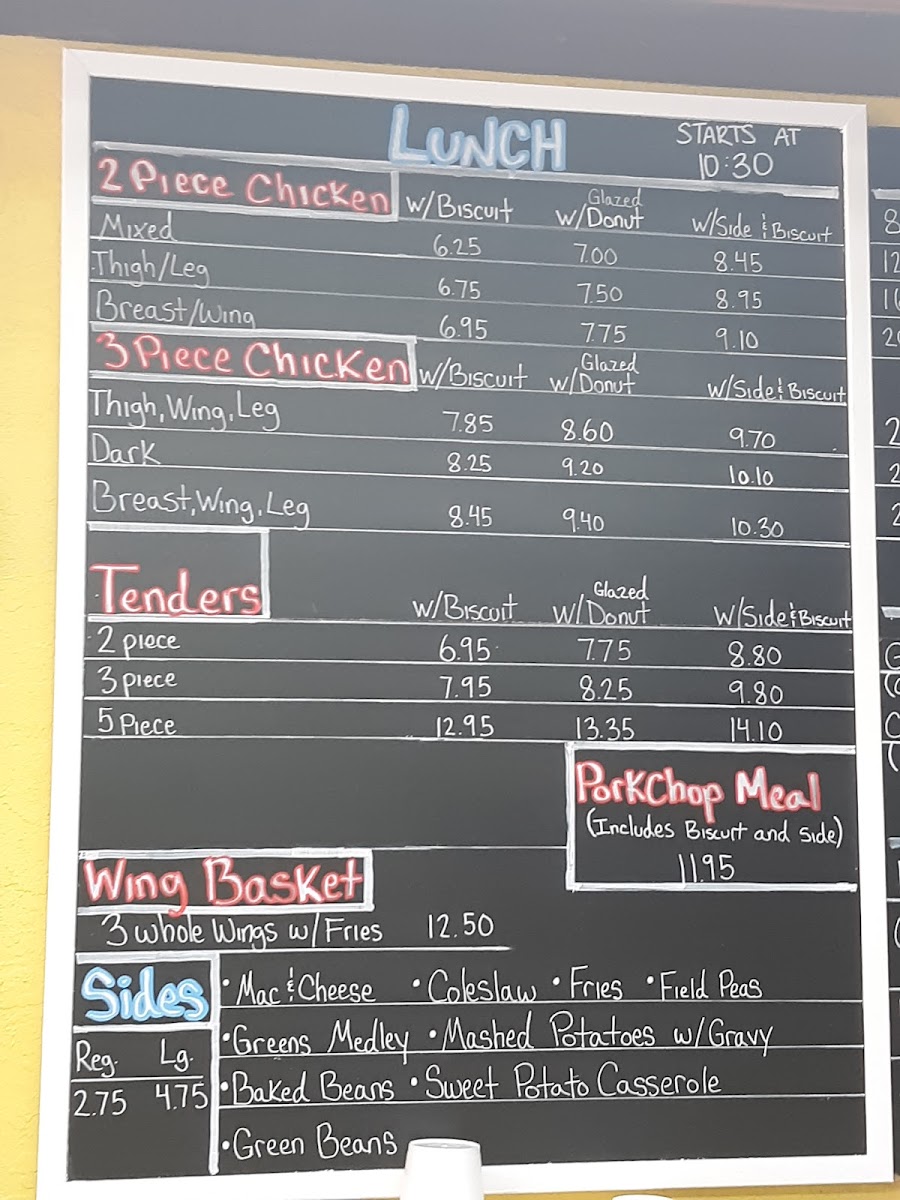 LUNCH STARTS AT
10:30
2 Piece Chicken w/Biscuit Glazed w/Donut w/Side & Biscuit
Mixed 6.25 7.00 8.45
Thigh/Leg 6.75 7.50 8.95
Breast/Wing 6.95 7.75 9.10
3 Piece Chicken w/Biscuit Glazed w/Donut w/Side & Biscuit
Thigh, Wing, Leg 7.85 8.60 9.70
Dark 8.25 9.20 10.10
Breast, Wing, Leg 8.45 9.40 10.30
Tenders w/Biscuit Glazed w/Donut w/Side & Biscuit
2 piece 6.95 7.75 8.80
3 piece 7.95 8.25 9.80
5 Piece 12.95 13.35 14.10
PorkChop Meal
(Includes Biscuit and side)
11.95
Wing Basket
3 whole Wings w/Fries 12.50
Sides
Reg. Lg.
2.75 4.75
• Mac & Cheese • Coleslaw • Fries • Field Peas
• Greens Medley • Mashed Potatoes w/Gravy
• Baked Beans • Sweet Potato Casserole
• Green Beans